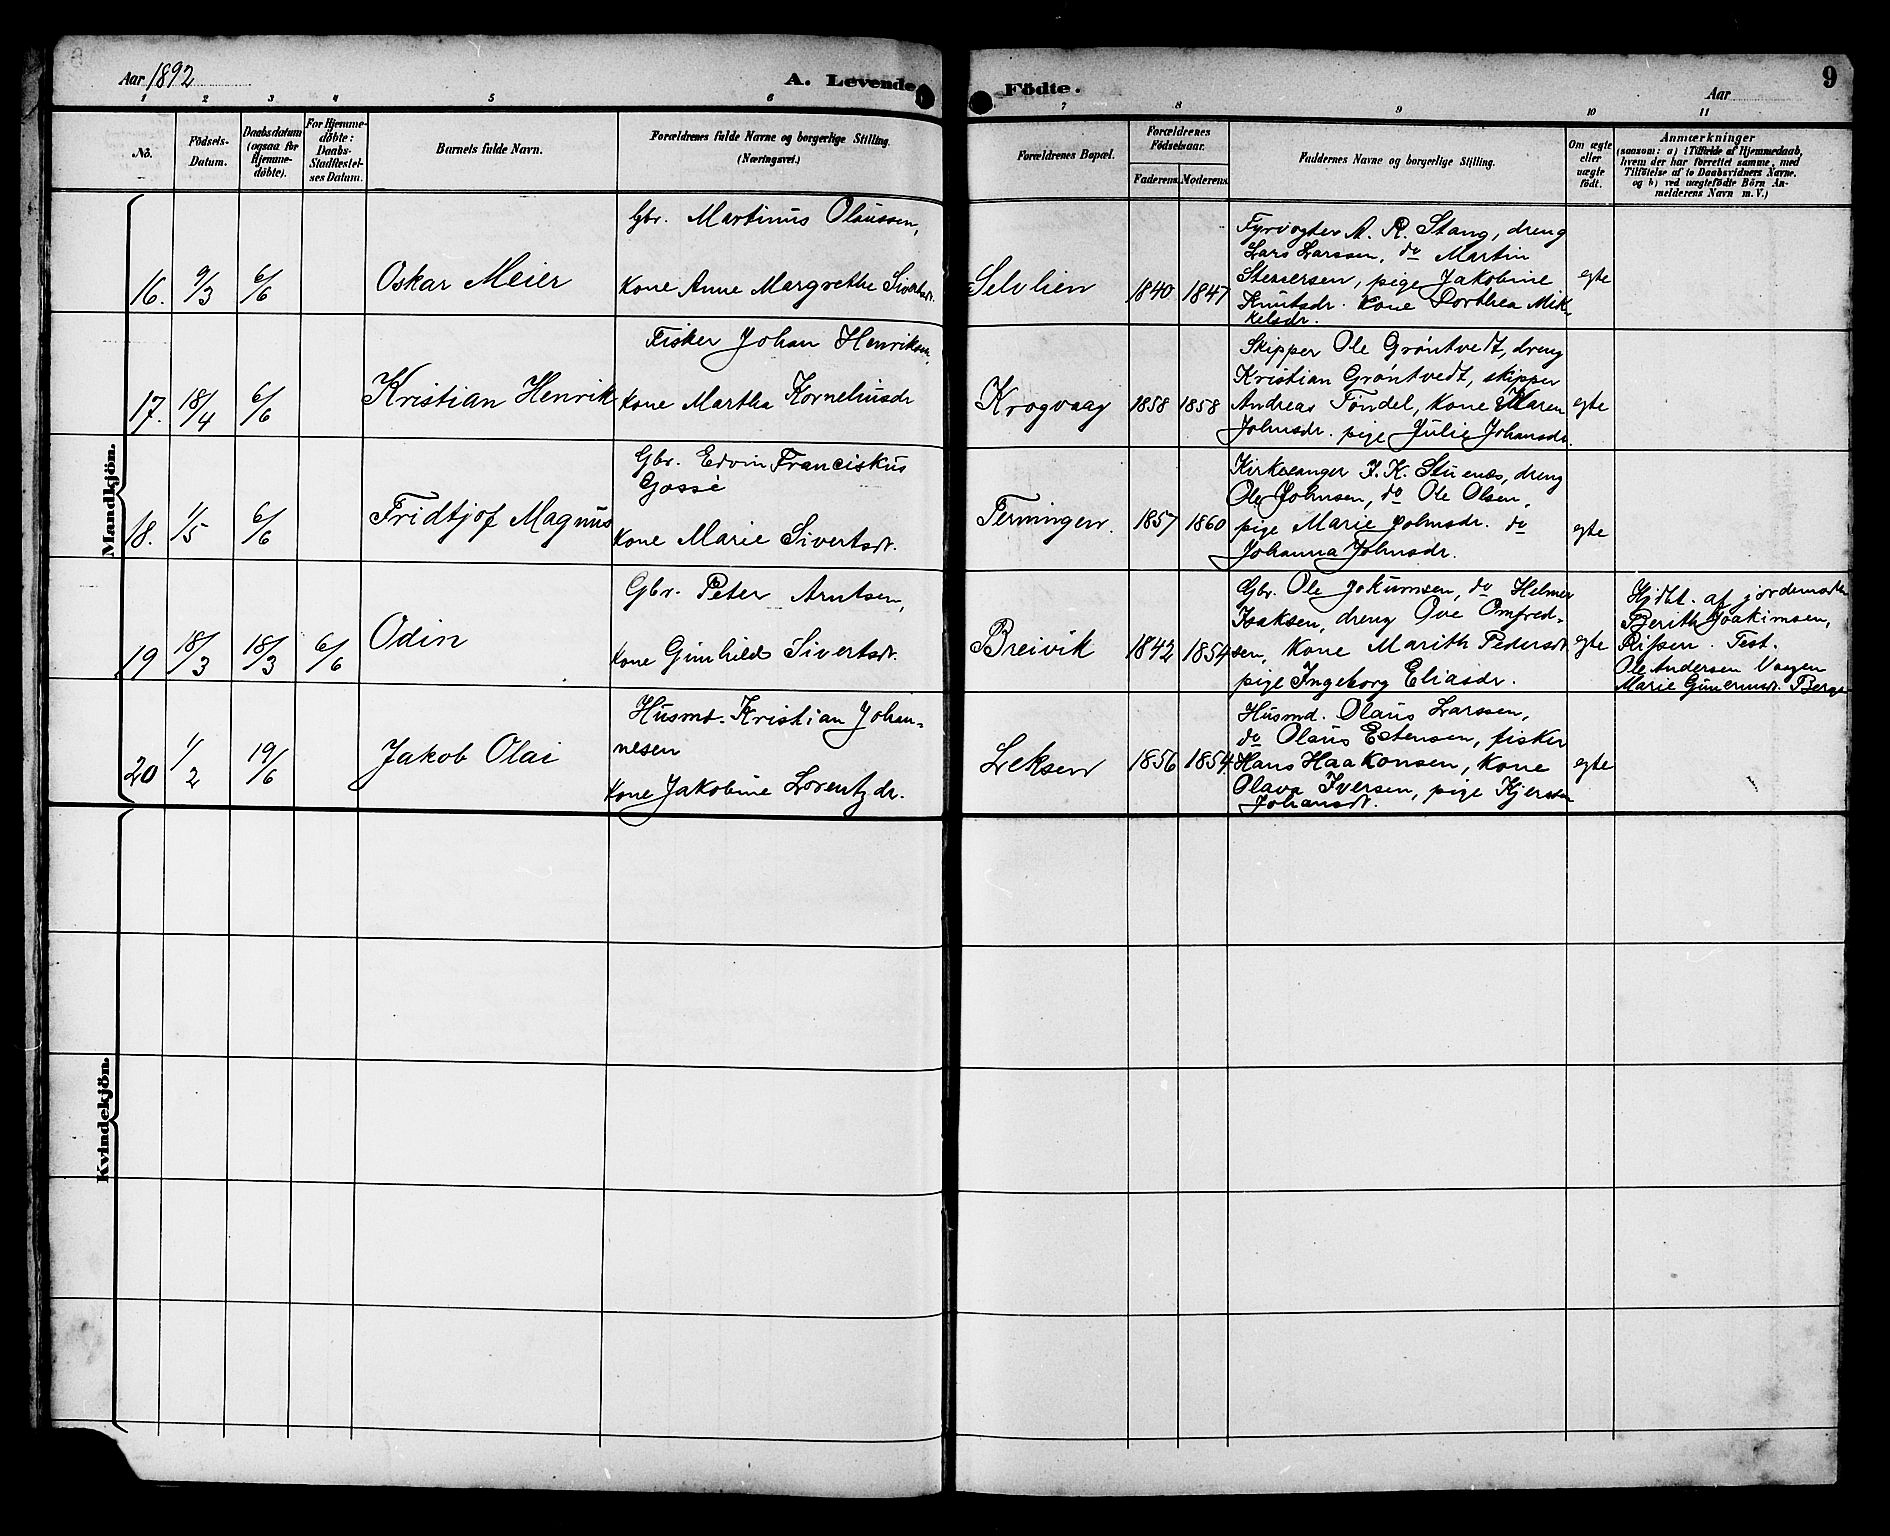 Aar 1892
A. Levende Födte.
Aar
9
1 2 3 4 5 6 7 8 9 10 11
No.
Födsels-
Datum.
Daabsdatum
(ogsaa for
Hjemme-
döbte).
For Hjemme-
döbte:
Daabs-
Stadfestel-
ses Datum.
Barnets fulde Navn.
Forældrenes fulde Navne og borgerlige Stilling.
(Næringsvei.)
Forældrenes Bopæl.
Forældrenes
Födselsaar.
Faderens. Moderens.
Faddernes Navne og borgerlige Stilling.
Om ægte
eller
uægte
födt.
Anmærkninger
(saasom: a) i Tilfælde af Hjemmedaab,
hvem der har forrettet samme, med
Tilföielse af to Daabsvidners Navne.
og b) ved uægtefödte Börn An-
melderens Navn m. V.)
Mandkjön.
16. 9/3 6/6
Oskar Meier
Gbr. Martinus Olaussen,
Kone Anne Margrethe Sivertsdr.
Selvlien
1840 1847
Fyrvogter A. R. Stang, dreng
Lars Larssen, do Martin
pige Jakobine
Knutsdr. Kone Dorthea Mik-
kelsdr.
egte
17. 18/4 6/6
Kristian Henrik
Fisker Johan Henriksen,
Kone Martha Korneliusdr
Krogvaag
1858 1858
Skipper Ole Gröntvedt, dreng
Kristian Gröntvedt, skipper
Andreas Föndel, Kone Maren
Johnsdr. pige Julie Johansdr.
egte
18. 1/5 6/6
Fridtjof Magnus
Gbr. Edvin Franciskus
Gossé
Kone Marie Sivertsdr.
Terningen.
1857 1860
Kirkesanger J. K. Stuenæs, dreng
Ole Johnsen, do Ole Olsen,
pige Marie Johnsdr. do
Johanna Johnsdr.
egte
19 18/3 18/3 6/6
Odin
Gbr. Peter Arntsen,
Kone Gunhild Sivertsdr.
Breivik
1842 1854
Gbr. Ole Jokumsen, do Helmer
Isaksen, dreng Ove Omfred-
sen, Kone Marith Pedersdr.
pige Ingeborg Eliasdr.
egte
Hjdbt. af jordemoder
Berith Joakimsen,
Test.
Ole Andersen Vaagen
Marie Berge
20 1/2 19/6
Jakob Olai
Husmd. Kristian Johan-
nesen
Kone Jakobine Lorentzdr.
Leksen
1856 1854
Husmd. Olaus Larssen,
do Olaus Estensen, fisker
Hans Haakonsen, Kone
Olava Iversen, pige
Johansdr.
egte
Kvindekjön.